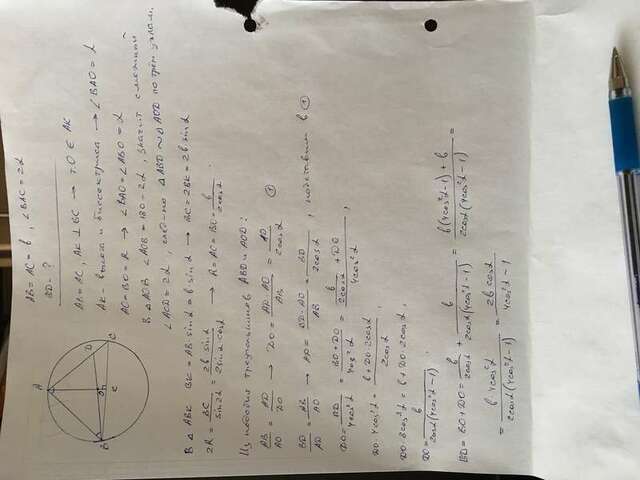 AB = AC = b, ∠BAC = 2α
BD - ?
AB = AC, AK ⊥ BC → т.O ∈ AK
AK - высота и биссектриса → ∠BAO = α
AO = BO = R → ∠BAO = ∠ABO = α
В Δ AOB ∠AOB = 180 - 2α, значит смежный
∠AOD = 2α, Δ ABD ~ Δ AOD по трем углам.
В Δ ABK BK = AB·sinα = b sinα → BC = 2BK = 2b sinα
2R = BC / sin2α = 2b sinα / 2sinα cosα → R = AO = BO = b / 2cosα
Из подобия треугольников ABD и AOD:
AB / AO = AD / DO → DO = AD·AO / AB = AD / 2cosα ①
BD / AD = AB / AO → AD = BD·AO / AB = BD / 2cosα, подставим в ①
DO = BD / 4cos²α = BO + DO / 4cos²α = b / 2cosα + DO / 4cos²α,
DO·4cos²α = b + DO·2cosα / 2cosα,
DO·8cos³α = b + DO·2cosα,
DO = b / 2cosα(4cos²α-1),
BD = BO + DO = b / 2cosα + b / 2cosα(4cos²α-1) = b(4cos²α-1) + b / 2cosα(4cos²α-1) =
= b·4cos²α / 2cosα(4cos²α-1) = 2b cosα / 4cos²α - 1
A
B
O
D
C